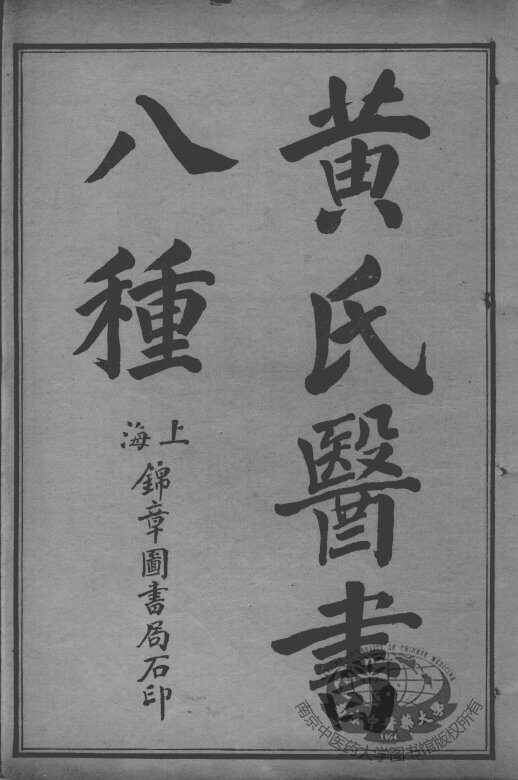 黃氏醫書
八種
上海
錦章圖書局石印
UNIVERSITY OF CHINESE MEDICINE
南京中医药大学图书馆版权所有